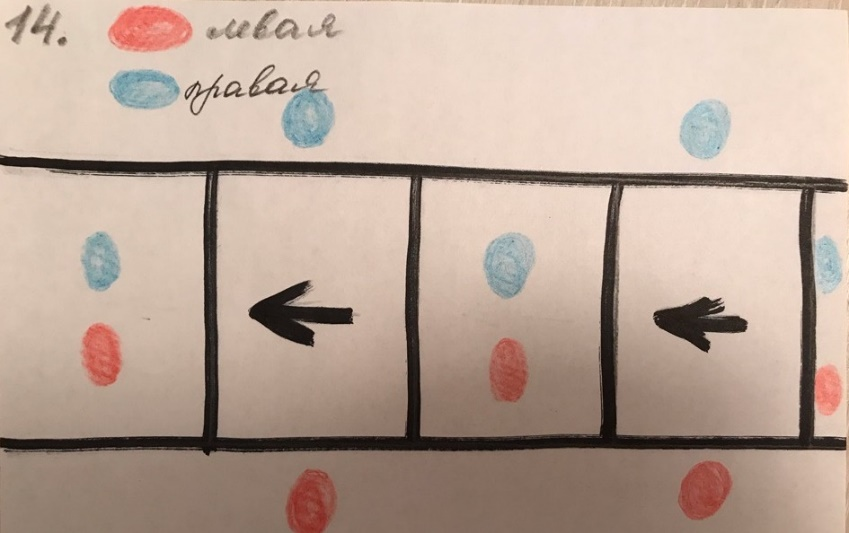 14. левая
правая